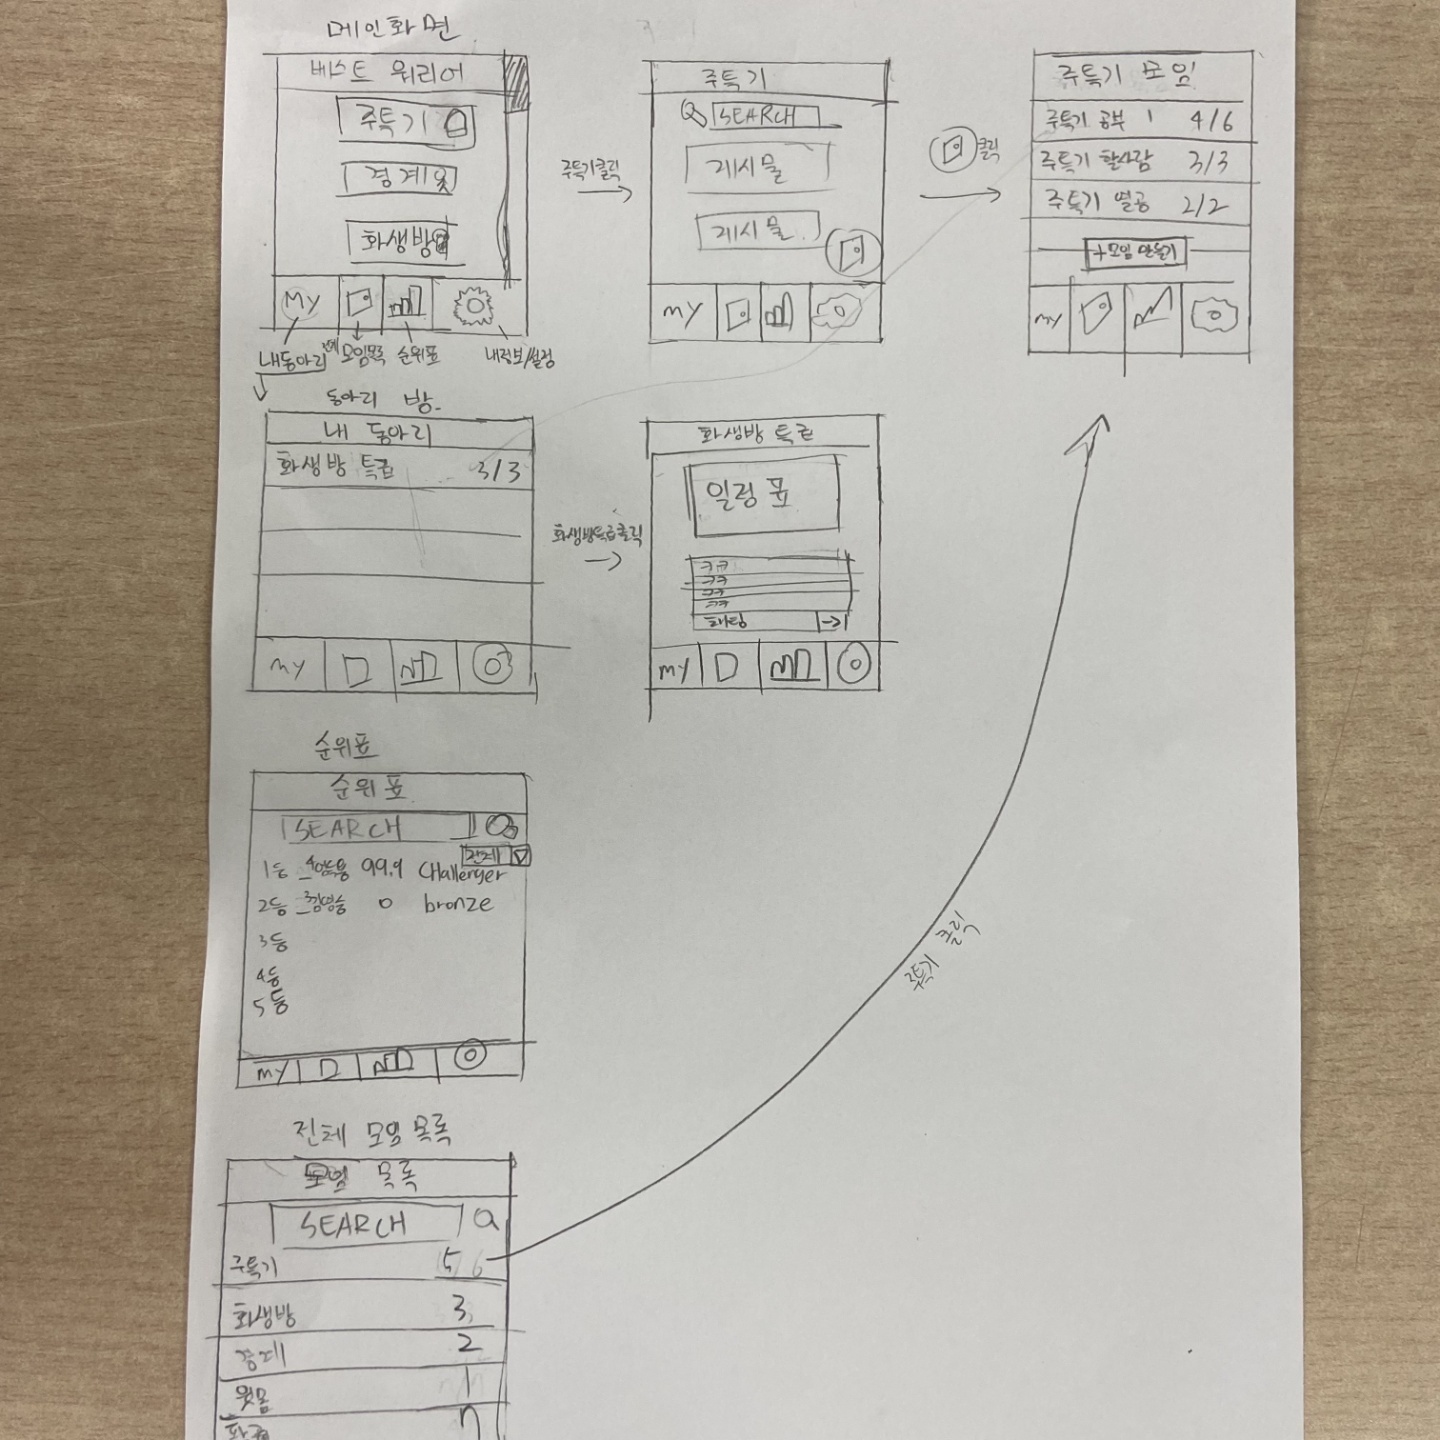 메인화면
베스트 워리어
주특기
경계
화생방
MY
내동아리
모임목록
순위표
내정보/설정
주특기클릭
주특기
SEARCH
게시물
게시물
MY
클릭
주특기 모임
주특기 공부 1 4/6
주특기 할사람 3/3
주특기 열공 2/2
+모임 만들기
MY
동아리 방
내 동아리
화생방 특급 3/3
MY
화생방특급클릭
화생방 특급
일정 표
ㅋㅋ
ㅋㅋ
ㅋㅋ
ㅋㅋ
채팅
MY
순위표
순위표
SEARCH
전체
1등 99.9 CHallenger
2등 0 bronze
3등
4등
5등
MY
주특기 클릭
전체 모임 목록
모임 목록
SEARCH
주특기 5
화생방 3
경계 2
윗몸 1
n